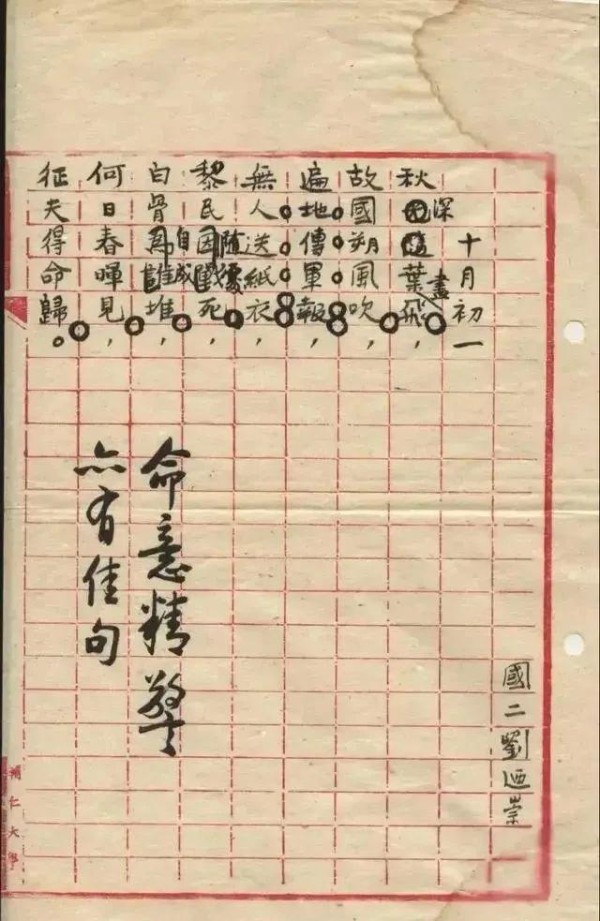 十月初一
國二 劉迺崇
秋深葉盡飛，
故國朔風吹，
遍地傳軍報，
無人送紙衣，
黎民隨死，
白骨自成堆，
何日春暉見，
征夫得命歸。
命意精警
亦有佳句
輔仁大學